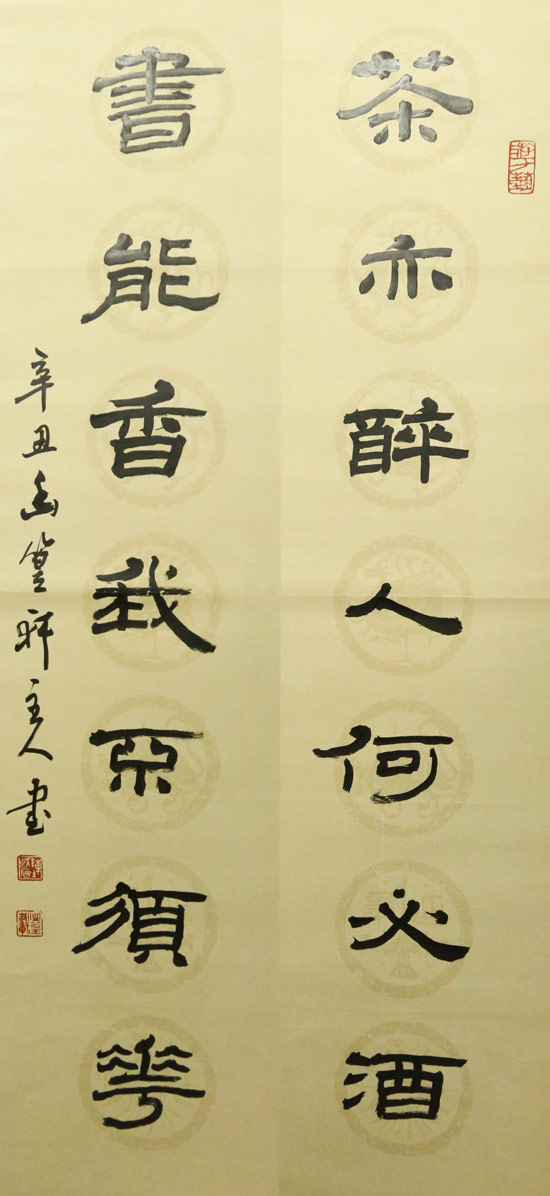 茶亦醉人何必酒
書能香我不須花
辛丑幽篁軒主人書